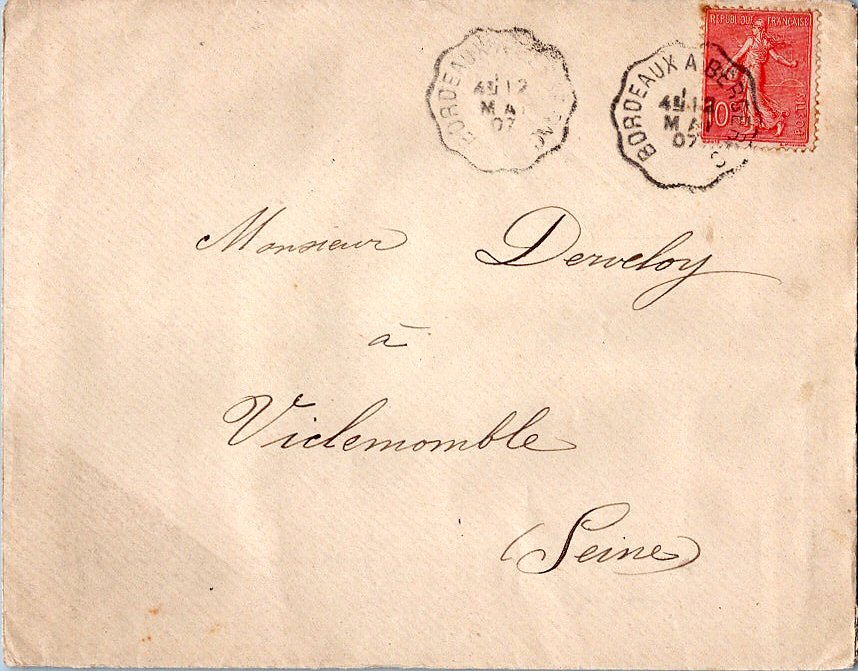 BORDEAUX
4E 12
MAI
07
BORDEAUX A BERGERAC
4E 12
MAI
07
REPUBLIQUE FRANÇAISE
10
Monsieur Derveloy
à
Villemomble
(Seine)